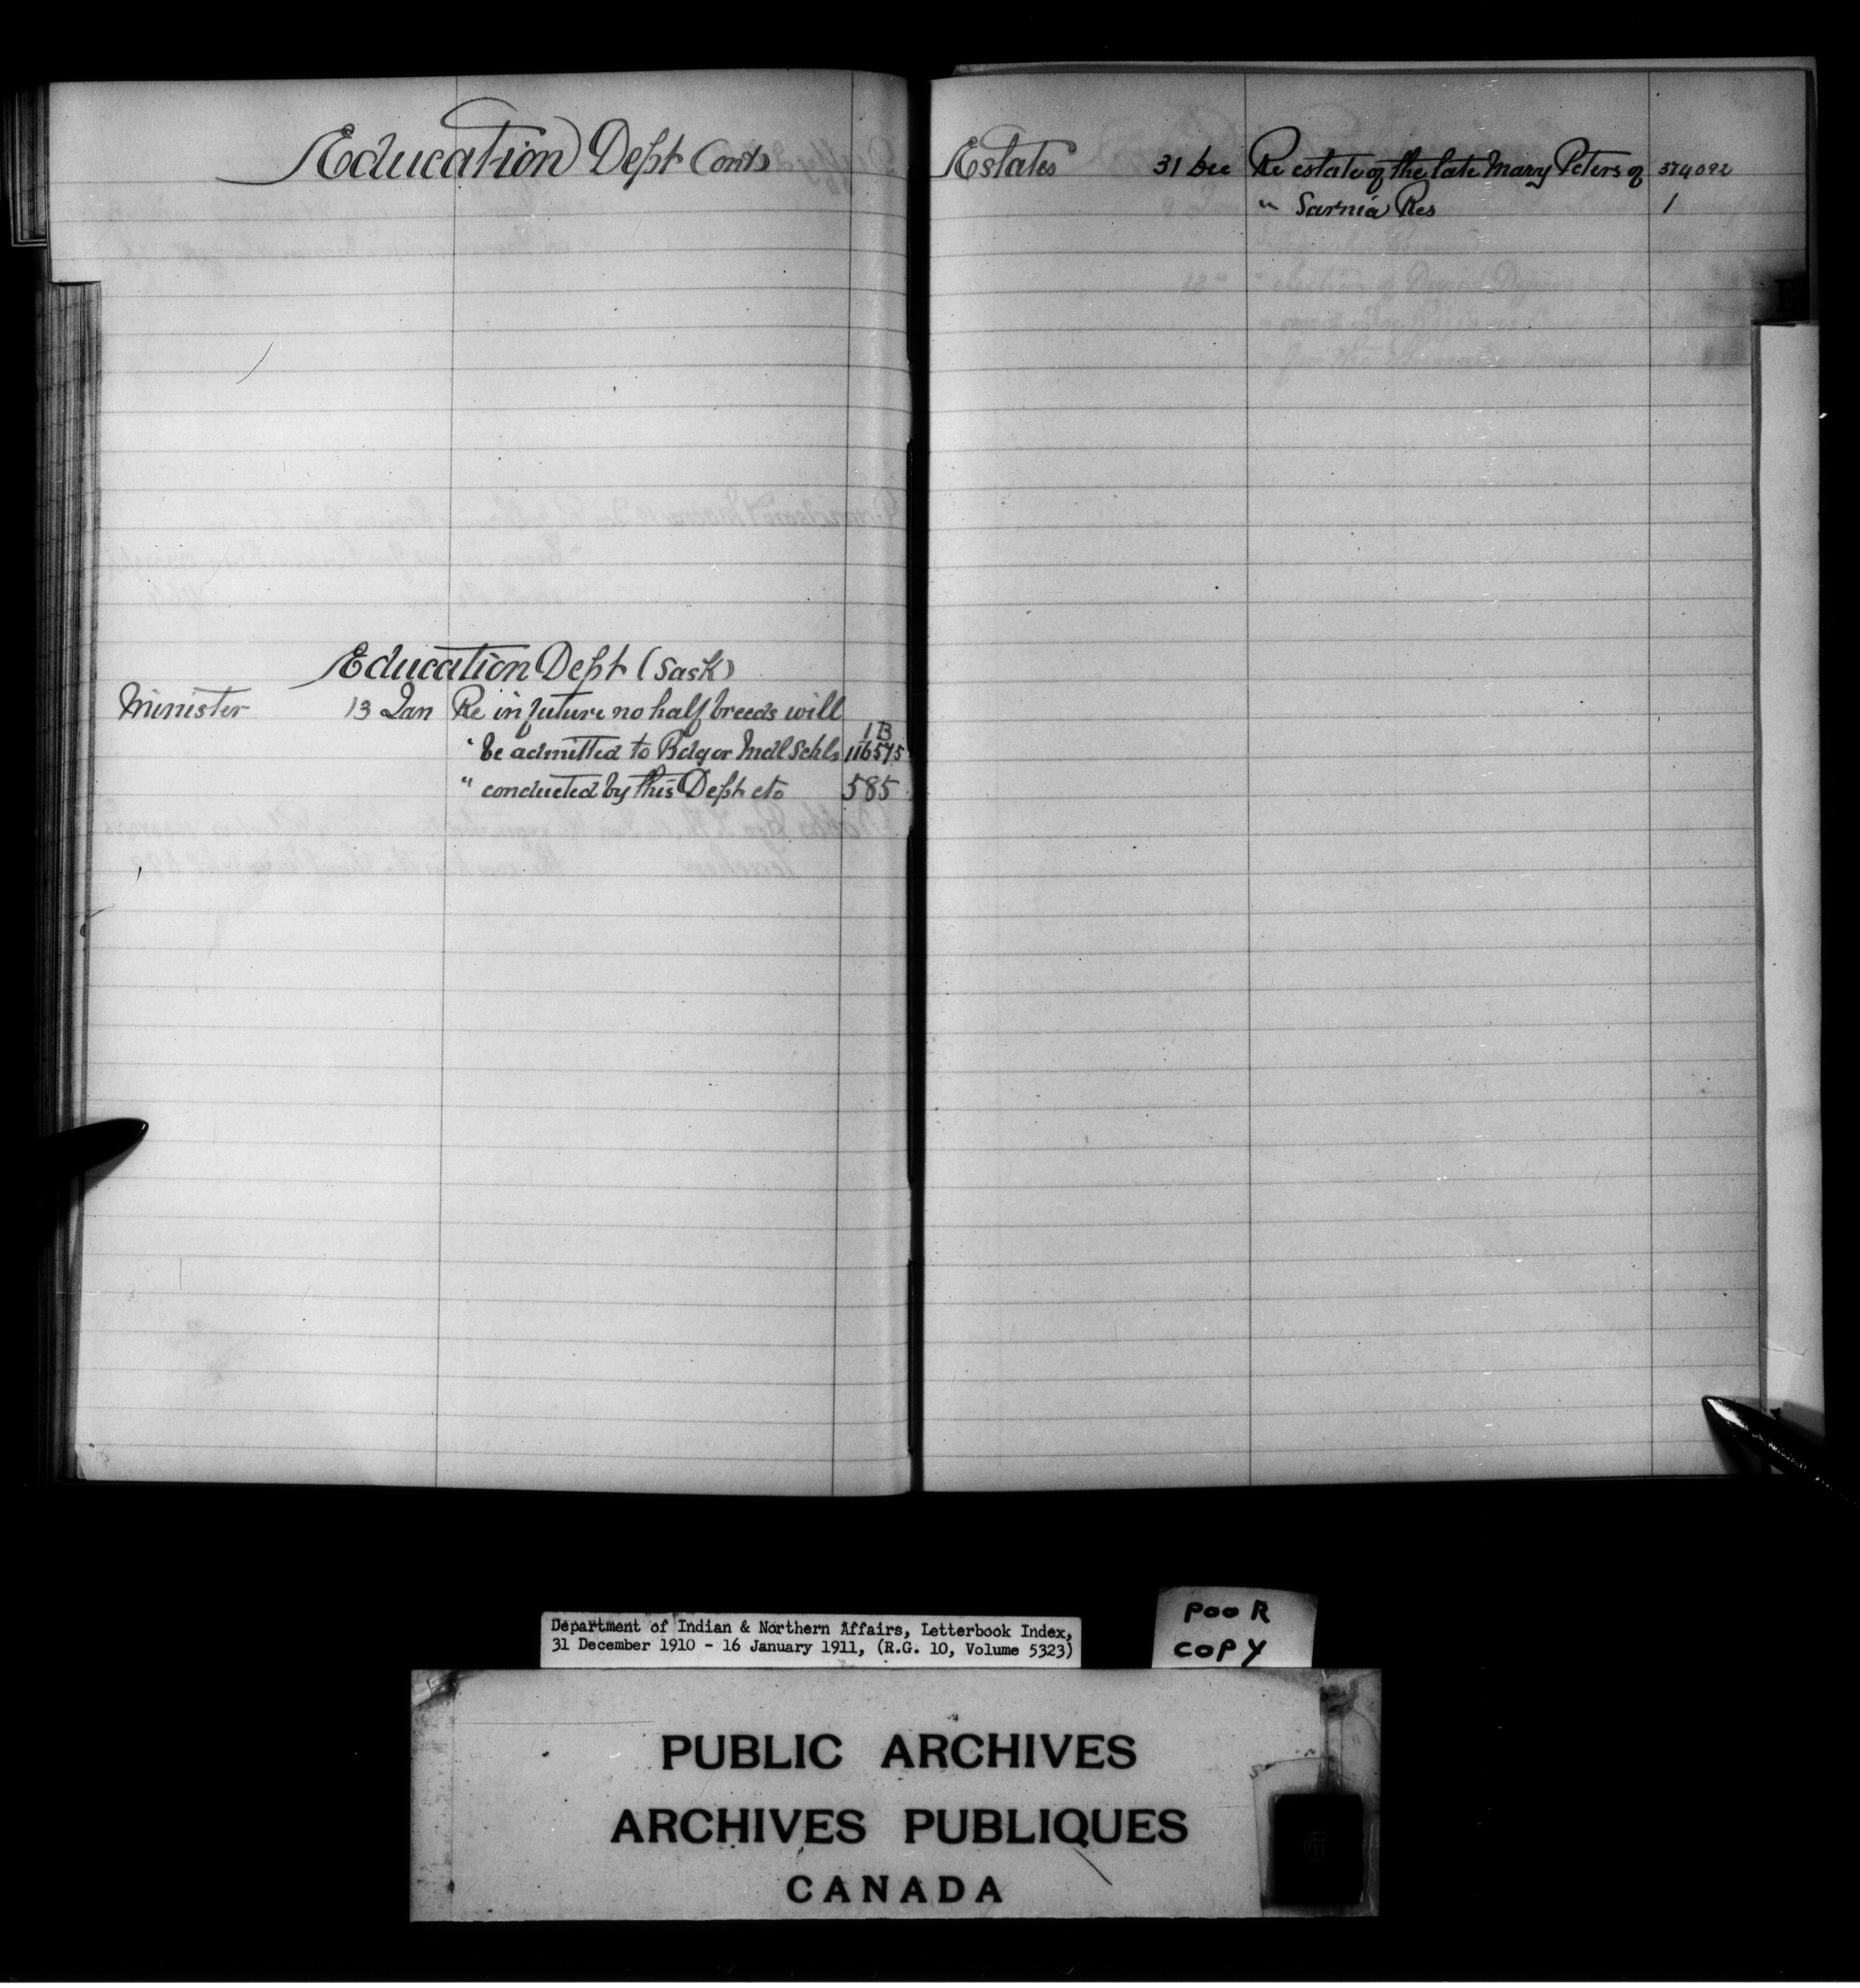 Education Dept (Ont)
Education Dept (Sask)
Minister 13 Jan Re in future no half breeds will
" be admitted to Bdg or Indl Schls 1B 116575
" conducted by this Dept etc 585
Estates 31 Dec Re estate of the late Mary Peters of 374092
" Sarnia Res 1
E
Department of Indian & Northern Affairs, Letterbook Index,
31 December 1910 - 16 January 1911, (R.G. 10, Volume 5323)
POOR
COPY
PUBLIC ARCHIVES
ARCHIVES PUBLIQUES
CANADA